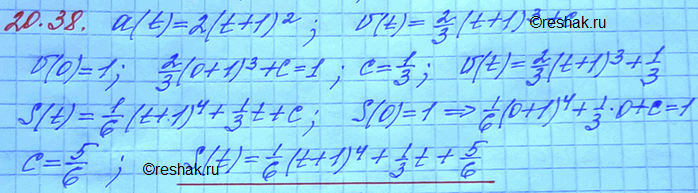 20.38. a(t)=2(t+1)²; υ(t)=2/3(t+1)³+c
υ(0)=1; 2/3(0+1)³+c=1; c=1/3; υ(t)=2/3(t+1)³+1/3
S(t)=1/6(t+1)⁴+1/3t+c; S(0)=1 ⟹ 1/6(0+1)⁴+1/3·0+c=1
c=5/6; S(t)=1/6(t+1)⁴+1/3t+5/6
©reshak.ru
©reshak.ru
©reshak.ru